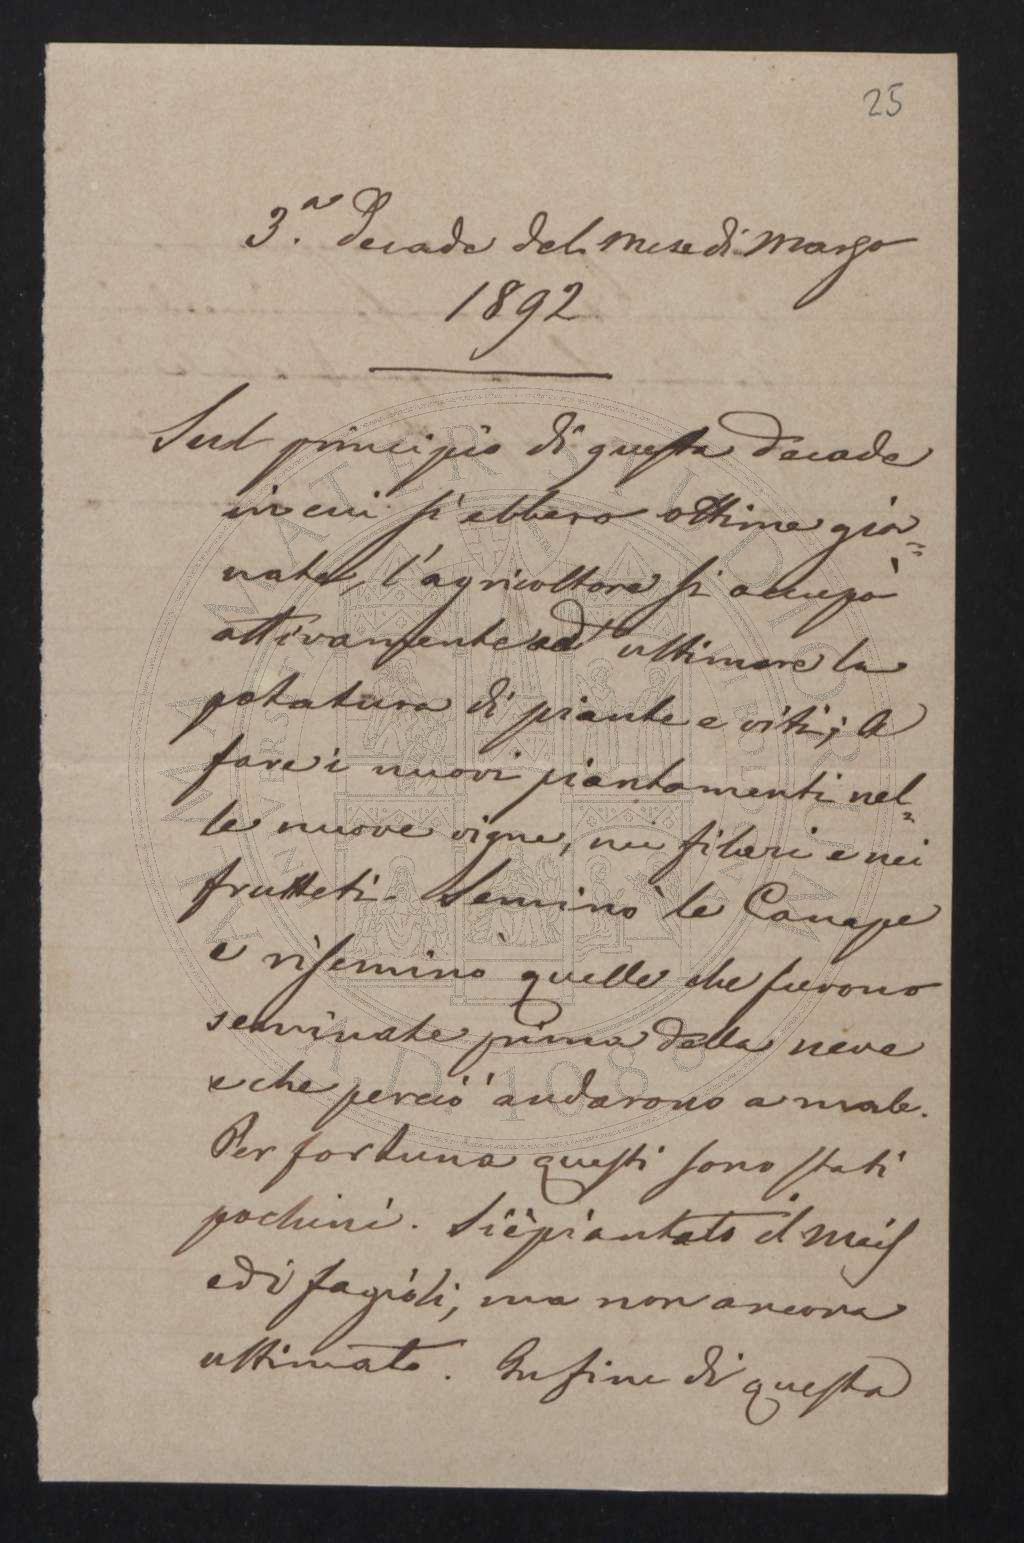 25
3.a Decade del mese di Marzo
1892
Sul principio di questa decade
in cui si ebbero ottime gior=
nate, l'agricoltore si occupò
attivamente ad ultimare la
potatura di piante e viti; a
fare i nuovi piantamenti nel=
le nuove vigne, nei filari e nei
frutteti. Seminò le Canape
e riseminò quelle che furono
seminate prima della neve
e che perciò andarono a male.
Per fortuna questi sono stati
pochini. Si è piantato il Mais
ed i fagioli, ma non ancora
ultimato. In fine di questa
ALMA MATER STUDIORUM
A.D. 1088